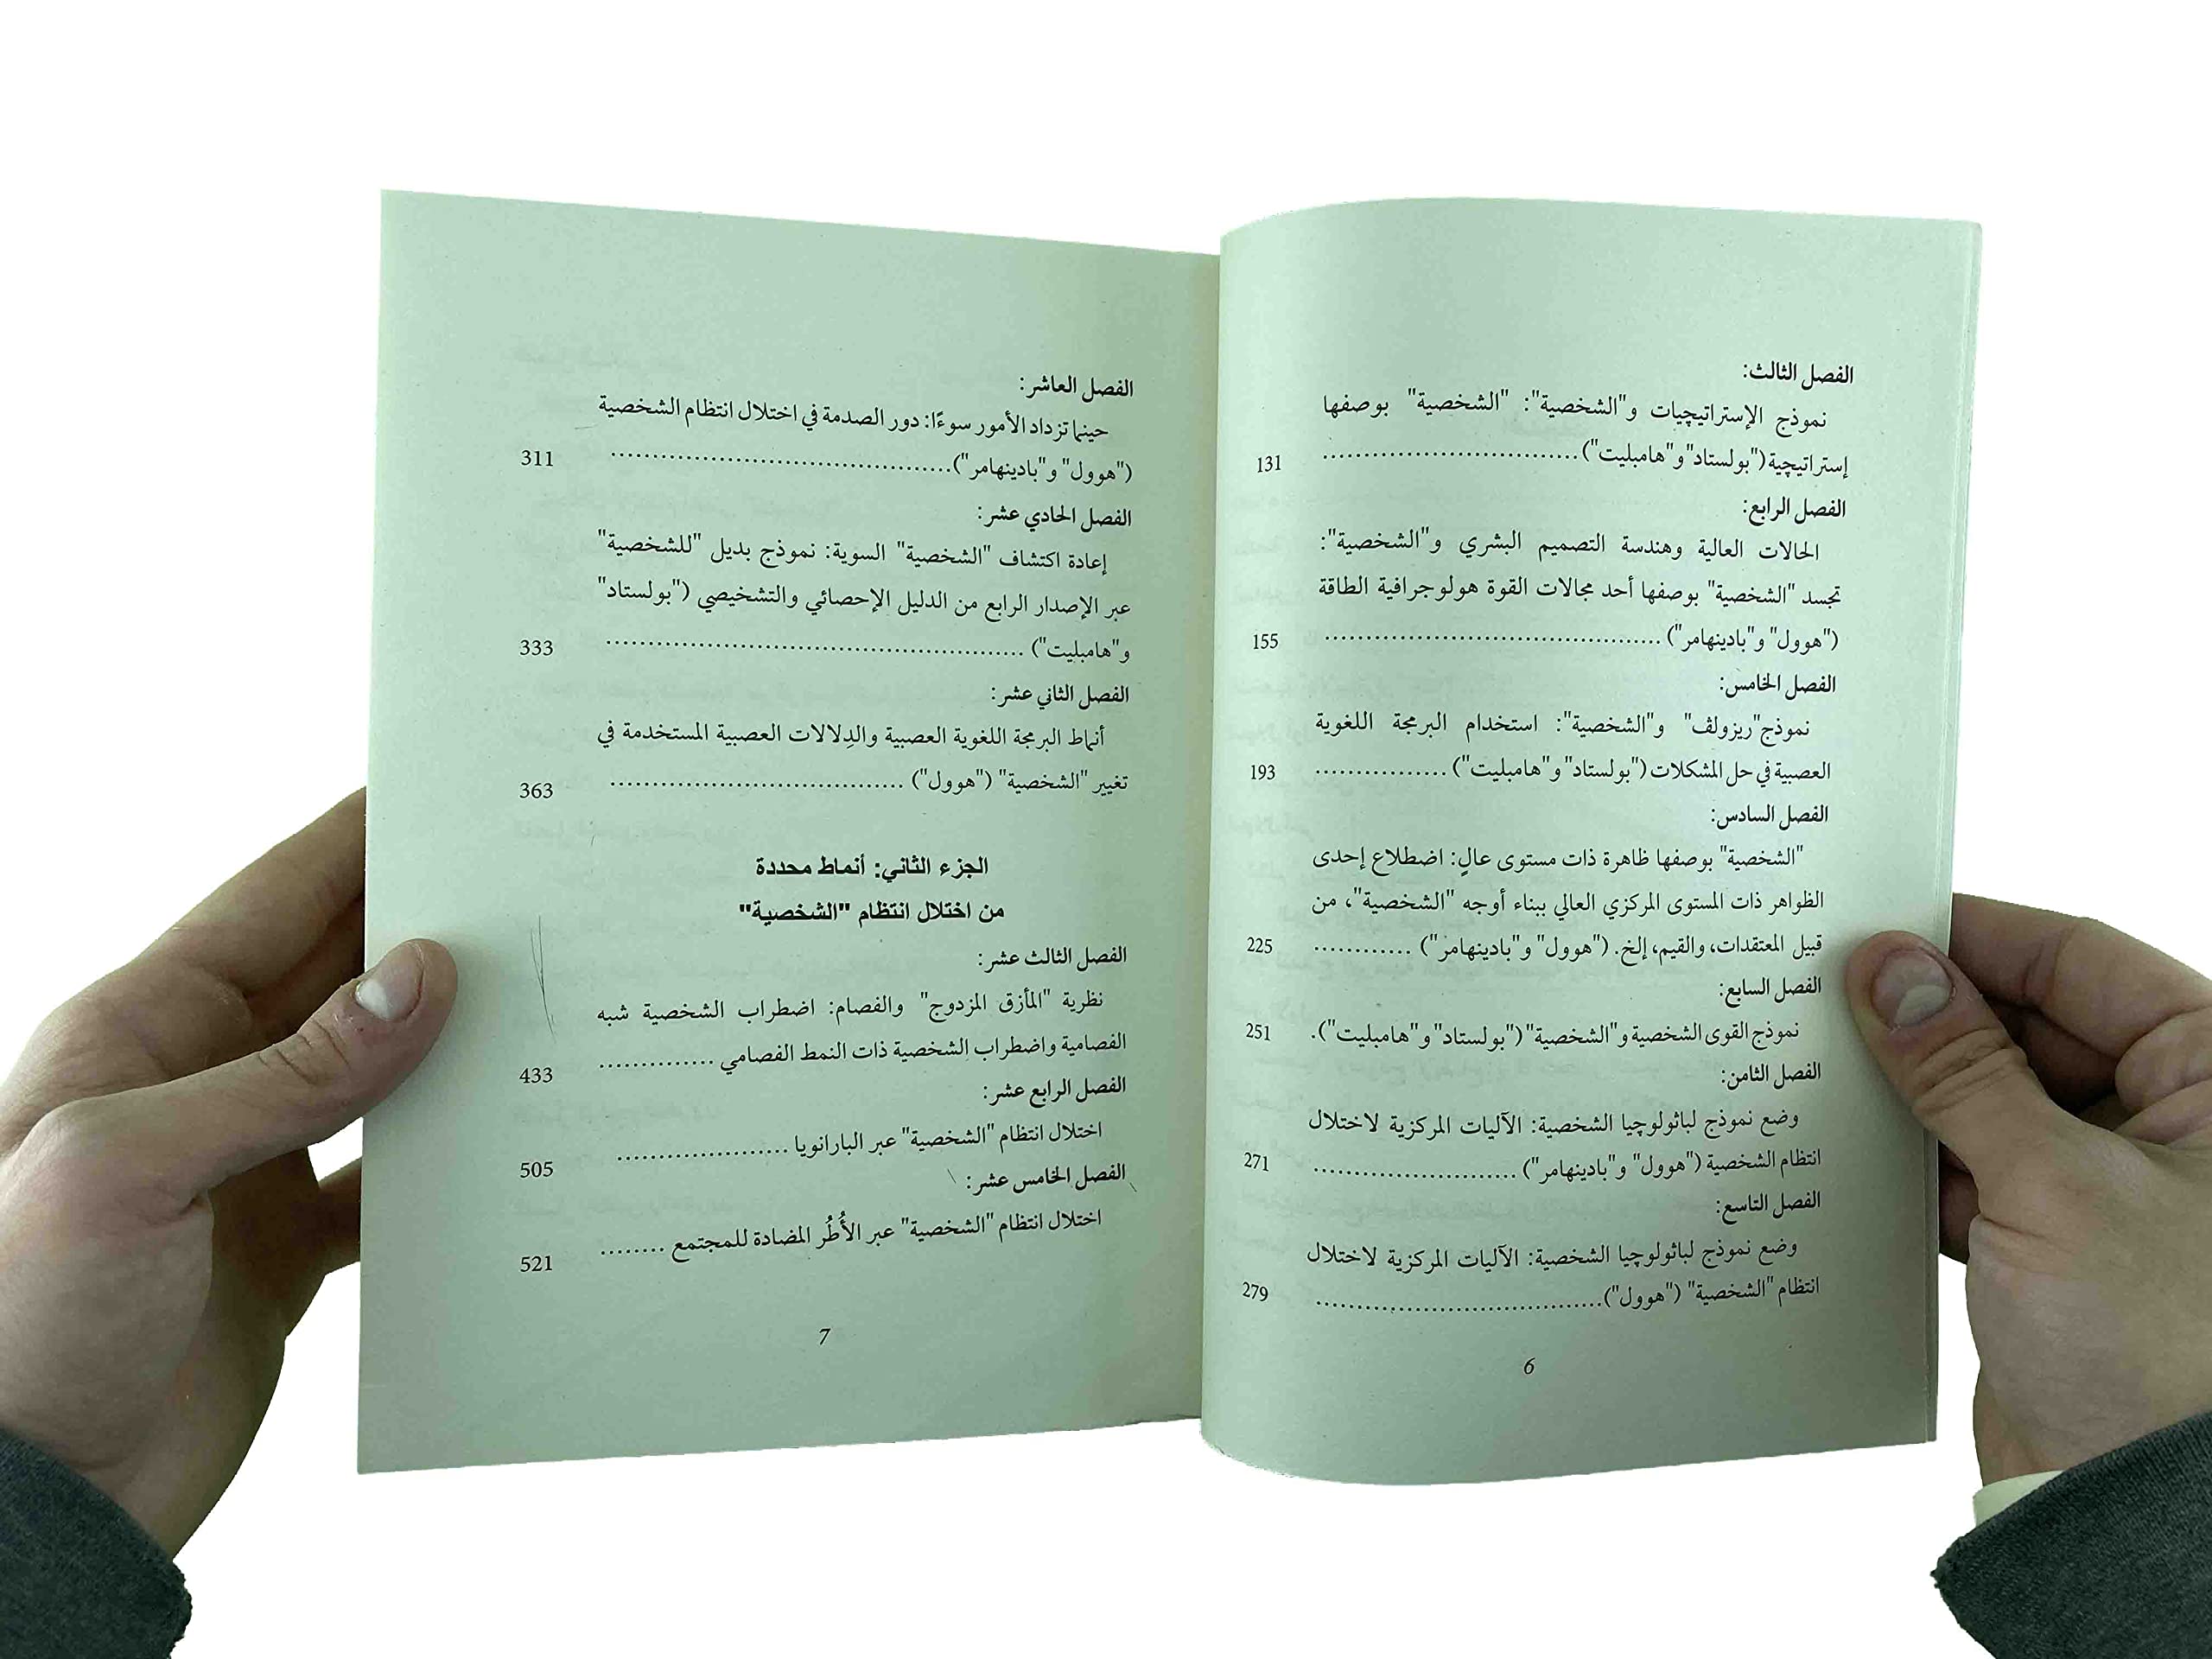 الفصل الثالث:
نموذج الإستراتيچيات و"الشخصية": "الشخصية" بوصفها
إستراتيچية ("بولستاد" و"هامبليت")............................... 131
الفصل الرابع:
الحالات العالية وهندسة التصميم البشري و"الشخصية":
تجسد "الشخصية" بوصفها أحد مجالات القوة هولوجرافية الطاقة
("هوول" و"بادينهامر") ......................................... 155
الفصل الخامس:
نموذج"ريزولڤ" و"الشخصية": استخدام البرمجة اللغوية
العصبية في حل المشكلات ("بولستاد" و"هامبليت") ................. 193
الفصل السادس:
"الشخصية" بوصفها ظاهرة ذات مستوى عالٍ: اضطلاع إحدى
الظواهر ذات المستوى المركزي العالي ببناء أوجه "الشخصية"، من
قبيل المعتقدات، والقيم، إلخ. ("هوول" و"بادينهامر") ............ 225
الفصل السابع:
نموذج القوى الشخصية و"الشخصية" ("بولستاد" و"هامبليت"). 251
الفصل الثامن:
وضع نموذج لباثولوچيا الشخصية: الآليات المركزية لاختلال
انتظام الشخصية ("هوول" و"بادينهامر") ......................... 271
الفصل التاسع:
وضع نموذج لباثولوچيا الشخصية: الآليات المركزية لاختلال
انتظام "الشخصية" ("هوول")................................... 279
6
الفصل العاشر:
حينما تزداد الأمور سوءًا: دور الصدمة في اختلال انتظام الشخصية
("هوول" و"بادينهامر")......................................... 311
الفصل الحادي عشر:
إعادة اكتشاف "الشخصية" السوية: نموذج بديل "للشخصية"
عبر الإصدار الرابع من الدليل الإحصائي والتشخيصي ("بولستاد"
و"هامبليت") ................................................... 333
الفصل الثاني عشر:
أنماط البرمجة اللغوية العصبية والدِلالات العصبية المستخدمة في
تغيير "الشخصية" ("هوول") .................................... 363
الجزء الثاني: أنماط محددة
من اختلال انتظام "الشخصية"
الفصل الثالث عشر:
نظرية "المأزق المزدوج" والفصام: اضطراب الشخصية شبه
الفصامية واضطراب الشخصية ذات النمط الفصامي .............. 433
الفصل الرابع عشر:
اختلال انتظام "الشخصية" عبر البارانويا ..................... 505
الفصل الخامس عشر:
اختلال انتظام "الشخصية" عبر الأُطُر المضادة للمجتمع ........ 521
7